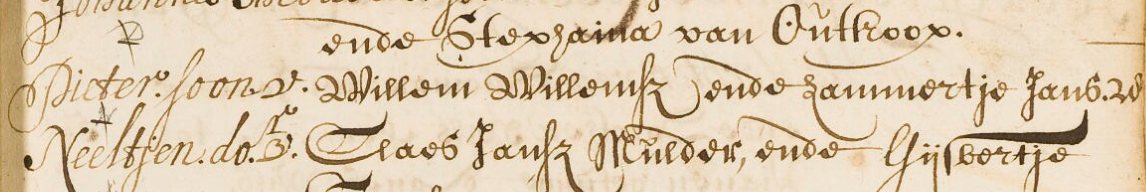 ende Stephaina van Outkoop.
Pieter. soon. v. Willem Willemsz ende hammertje Jans.
Neeltjen. do. v. Claes Jansz Mulder, ende Gijsbertje